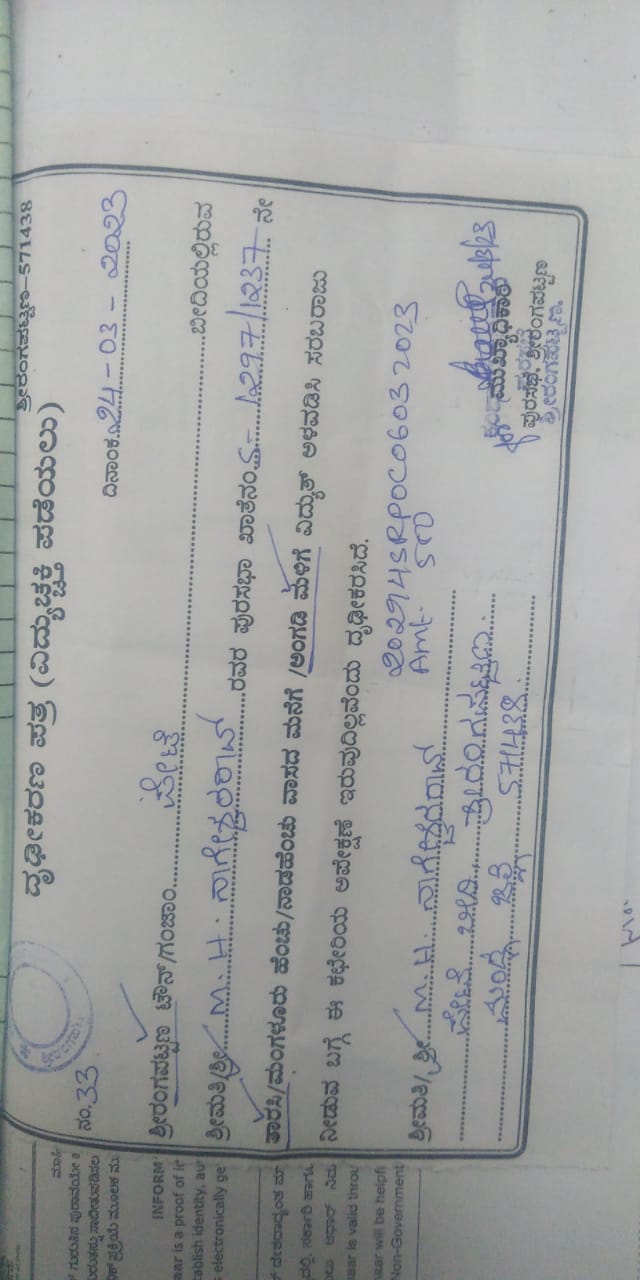 ಶ್ರೀರಂಗಪಟ್ಟಣ-571438
ದೃಢೀಕರಣ ಪತ್ರ (ವಿದ್ಯುಚ್ಛಕ್ತಿ ಪಡೆಯಲು)
ನಂ. 33
ದಿನಾಂಕ: 24-03-2023
ಶ್ರೀರಂಗಪಟ್ಟಣ ಟೌನ್/ಗಂಜಾಂ ಪೇಟೆ ಬೀದಿಯಲ್ಲಿರುವ
ಶ್ರೀಮತಿ/ಶ್ರೀ M.H. ನಾಗೇಶ್ವರರಾವ್ ರವರ ಪುರಸಭಾ ಖಾತೆನಂ. 5-1297/1237 ನೇ
ತಾರಸಿ/ಮಂಗಳೂರು ಹೆಂಚು/ನಾಡಹೆಂಚು ವಾಸದ ಮನೆಗೆ /ಅಂಗಡಿ ಮಳಿಗೆ ವಿದ್ಯುತ್ ಅಳವಡಿಸಿ ಸರಬರಾಜು
ನೀಡುವ ಬಗ್ಗೆ ಈ ಕಛೇರಿಯ ಅಪೇಕ್ಷಣೆ ಇರುವುದಿಲ್ಲವೆಂದು ದೃಢೀಕರಿಸಿದೆ.
202914SRPOC06032023
Amt. 50
ಶ್ರೀಮತಿ/ಶ್ರೀ M.H. ನಾಗೇಶ್ವರರಾವ್
ಪೇಟೆ ಬೀದಿ ಶ್ರೀರಂಗಪಟ್ಟಣ.
ಮಂಡ್ಯ ಜಿಲ್ಲೆ 571438.
24/3/23
ಮುಖ್ಯಾಧಿಕಾರಿ
ಪುರಸಭೆ, ಶ್ರೀರಂಗಪಟ್ಟಣ
ಶ್ರೀರಂಗಪಟ್ಟಣ.
INFORM
aar is a proof of i
tablish identity, au
electronically ge
aar is valid throu
aar will be helpf
Non-Government